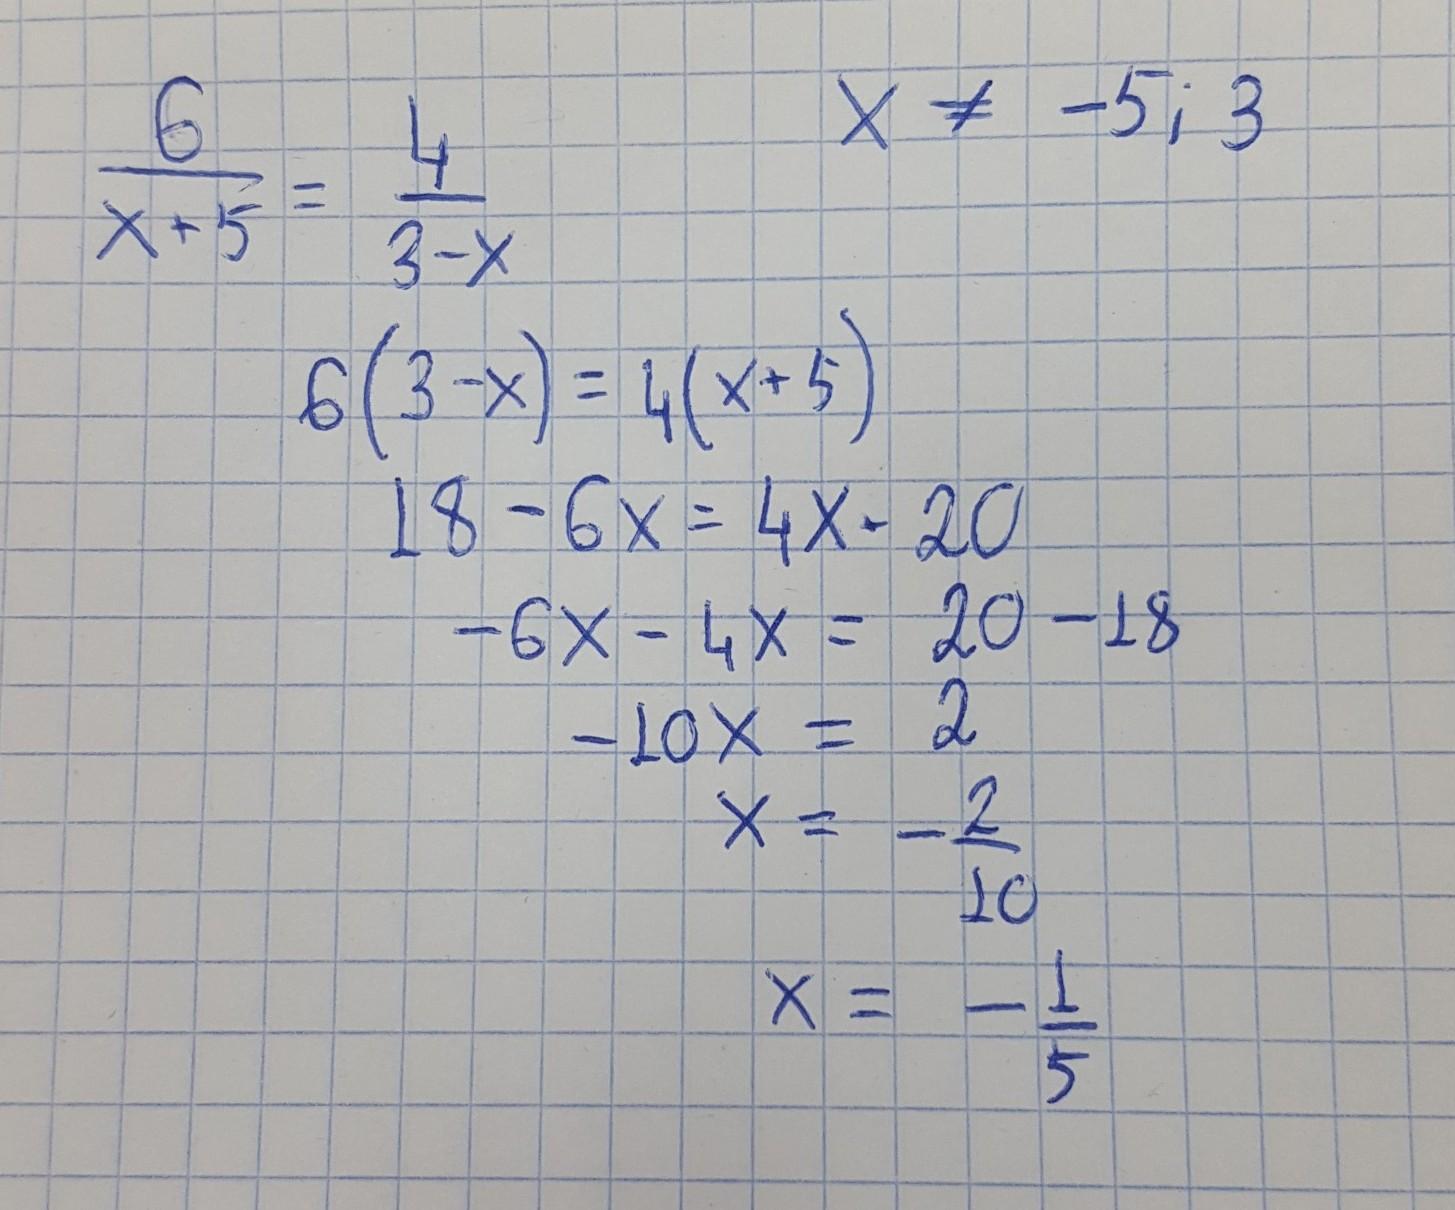 6/(x+5) = 4/(3-x)    x ≠ -5; 3
6(3-x) = 4(x+5)
18 - 6x = 4x - 20
-6x - 4x = 20 - 18
-10x = 2
x = -2/10
x = -1/5